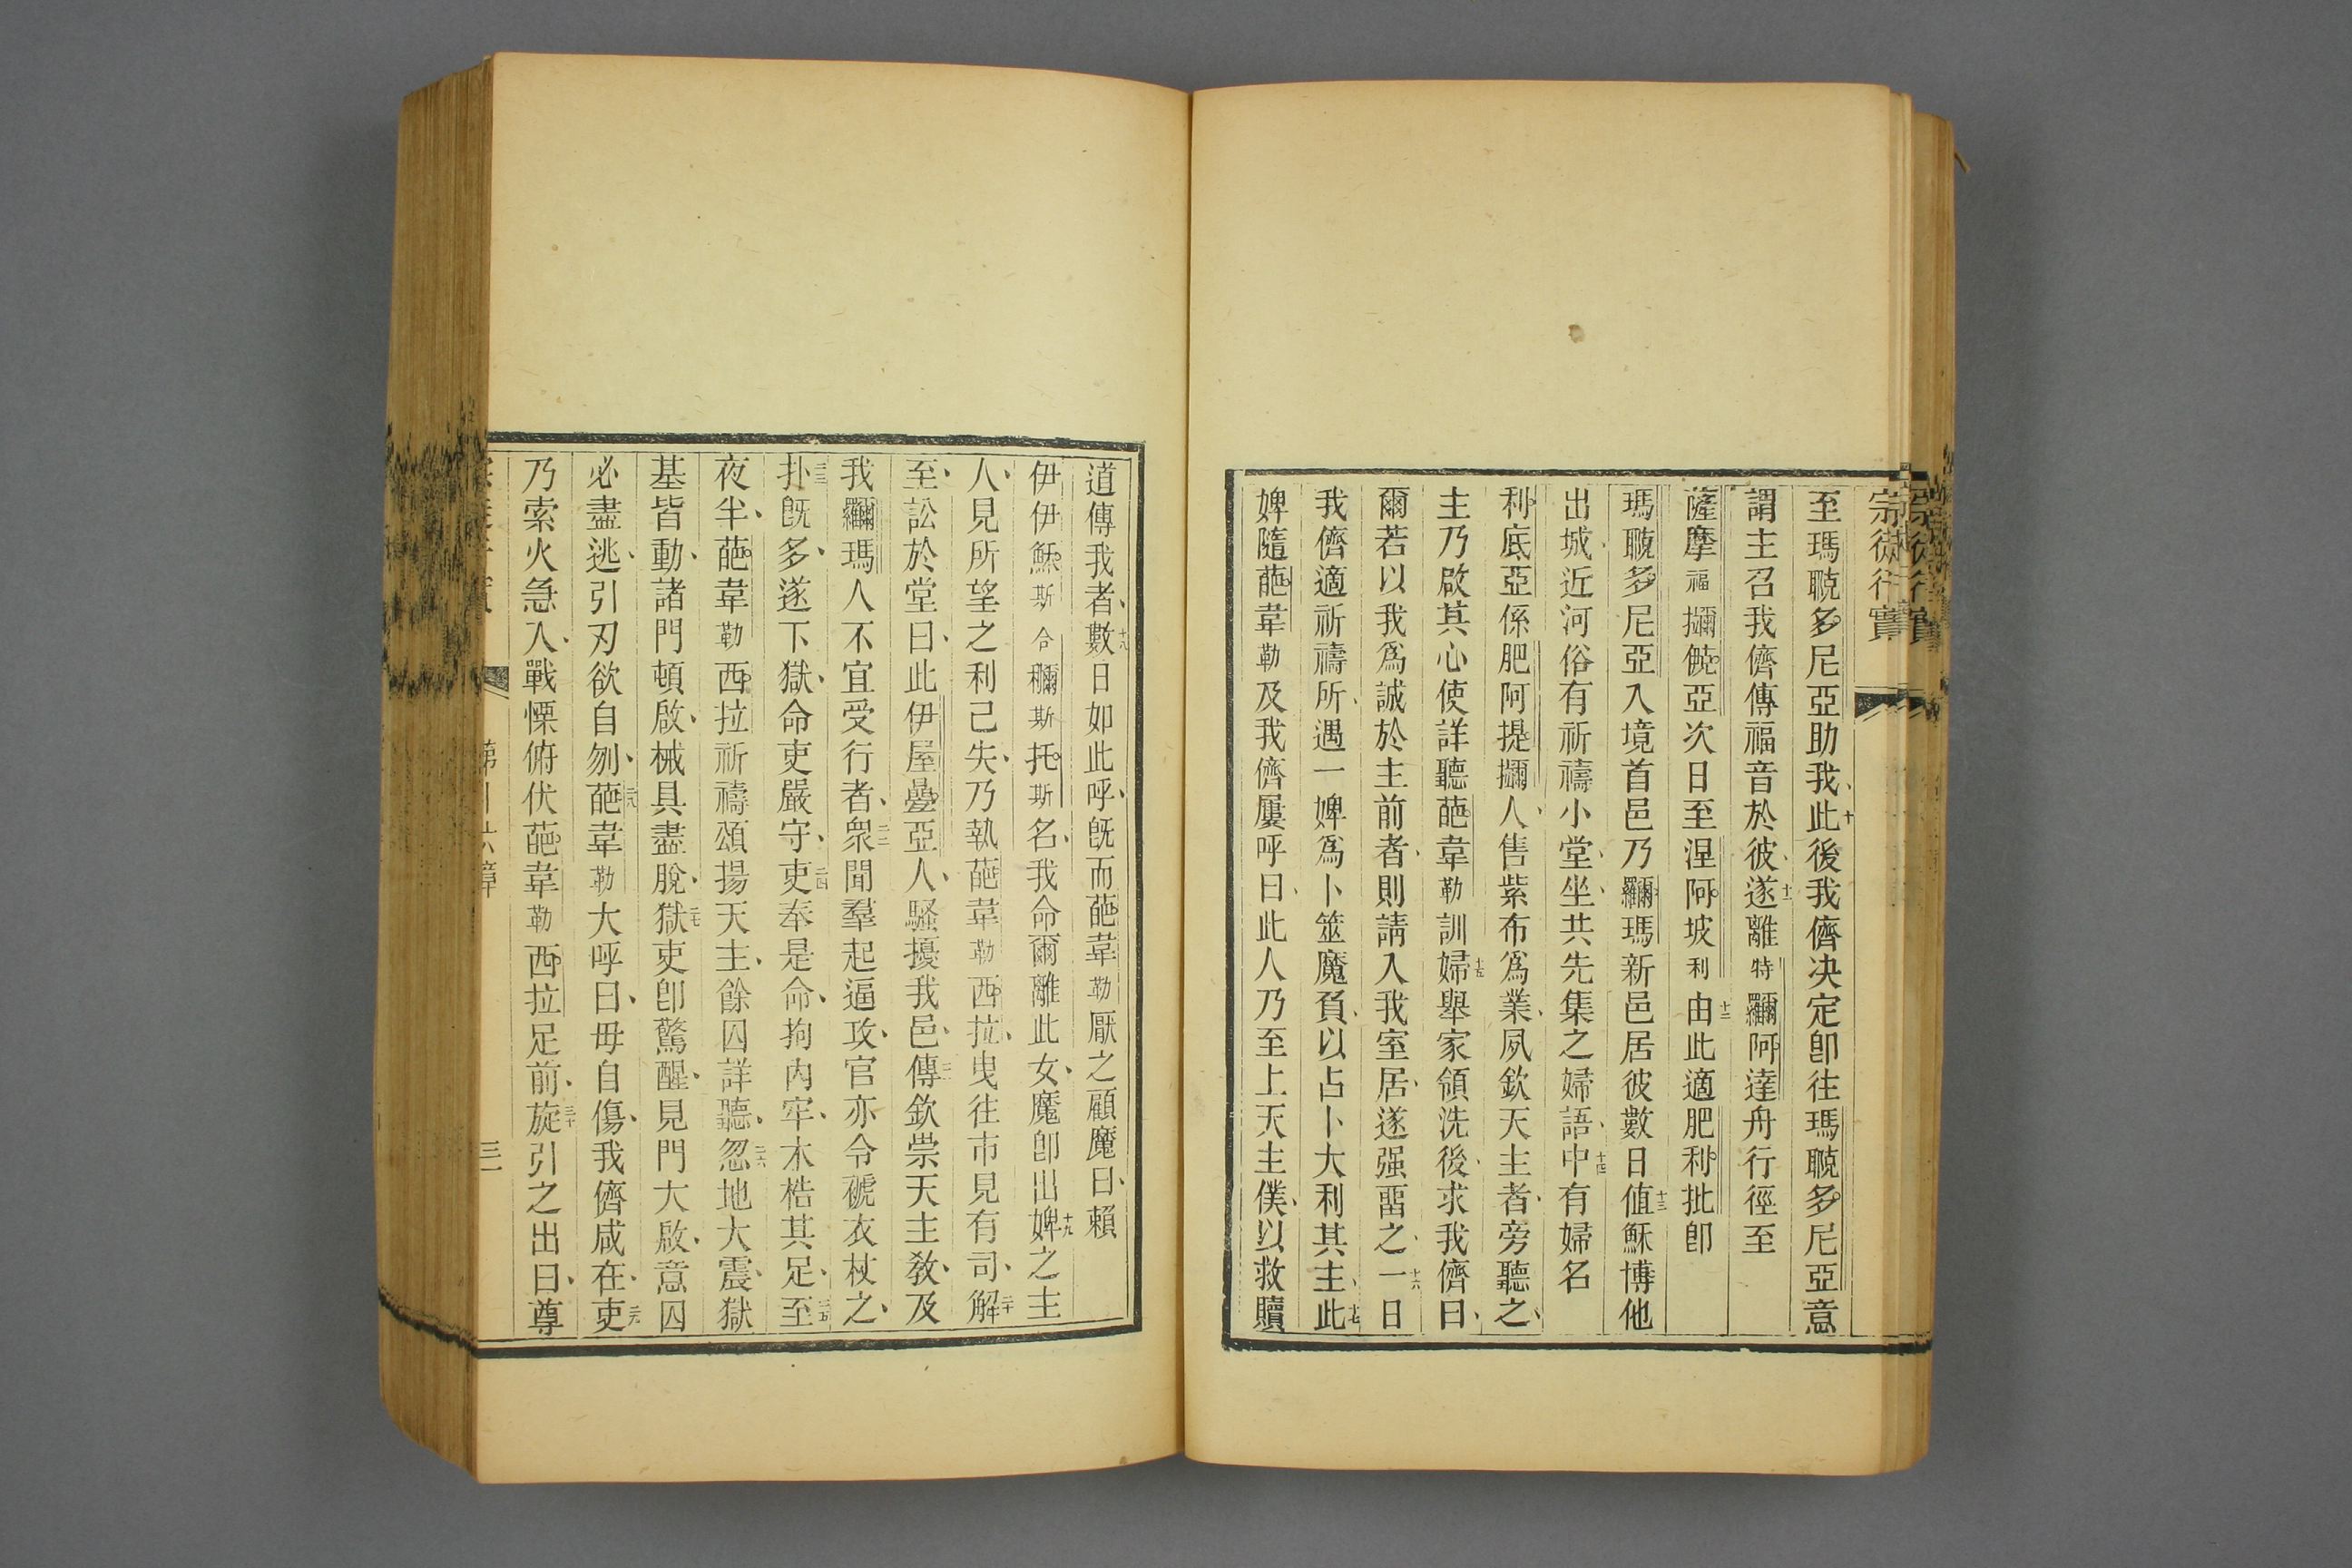 宗徒行實
至瑪聭多尼亞助我此十後我儕决定卽往瑪聭多尼亞意
謂主召我儕傳福音於彼遂十一離特羅爾阿達舟行徑至
薩摩福擟僥亞次日至涅阿坡利由十二此適肥利批卽
瑪聭多尼亞入境首邑乃羅爾瑪新邑居彼數日値十三穌博他
出城近河俗有祈禱小堂坐共先集之婦語中十四有婦名
利底亞係肥阿提擟人售紫布爲業夙欽天主者旁聽之
主乃啟其心使詳聽葩韋勒訓婦十五舉家領洗後求我儕曰
爾若以我爲誠於主前者則請入我室居遂强畱之一十六日
我儕適祈禱所遇一婢爲卜筮魔負以占卜大利其主此十七
婢隨葩韋勒及我儕屢呼曰此人乃至上天主僕以救贖
道傳我者數十八日如此呼旣而葩韋勒厭之顧魔曰賴
伊伊穌斯合穪斯托斯名我命爾離此女魔卽出婢十九之主
人見所望之利已失乃執葩韋勒西拉曳往市見有司解二十
至訟於堂曰此伊屋疊亞人騷擾我邑傳二一欽崇天主敎及
我羅爾瑪人不宜受行者衆二二聞羣起逼攻官亦令褫衣杖之
扑二三旣多遂下獄命吏嚴守吏二四奉是命拘內牢木梏其足至二五
夜半葩韋勒西拉祈禱頌揚天主餘囚詳聽忽二六地大震獄
基皆動諸門頓啟械具盡脫獄二七吏卽驚醒見門大啟意囚
必盡逃引刃欲自刎葩二八韋勒大呼曰毋自傷我儕咸在吏二九
乃索火急入戰慄俯伏葩韋勒西拉足前旋三十引之出曰尊
第十六章